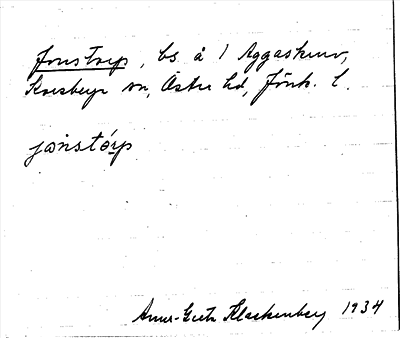 Jonstorp, bs å 1 Aggaskurv,
Korsberga sn, Östra hd, Jönk. l.
jönstórp
Anna-Greta Klackenberg 1934